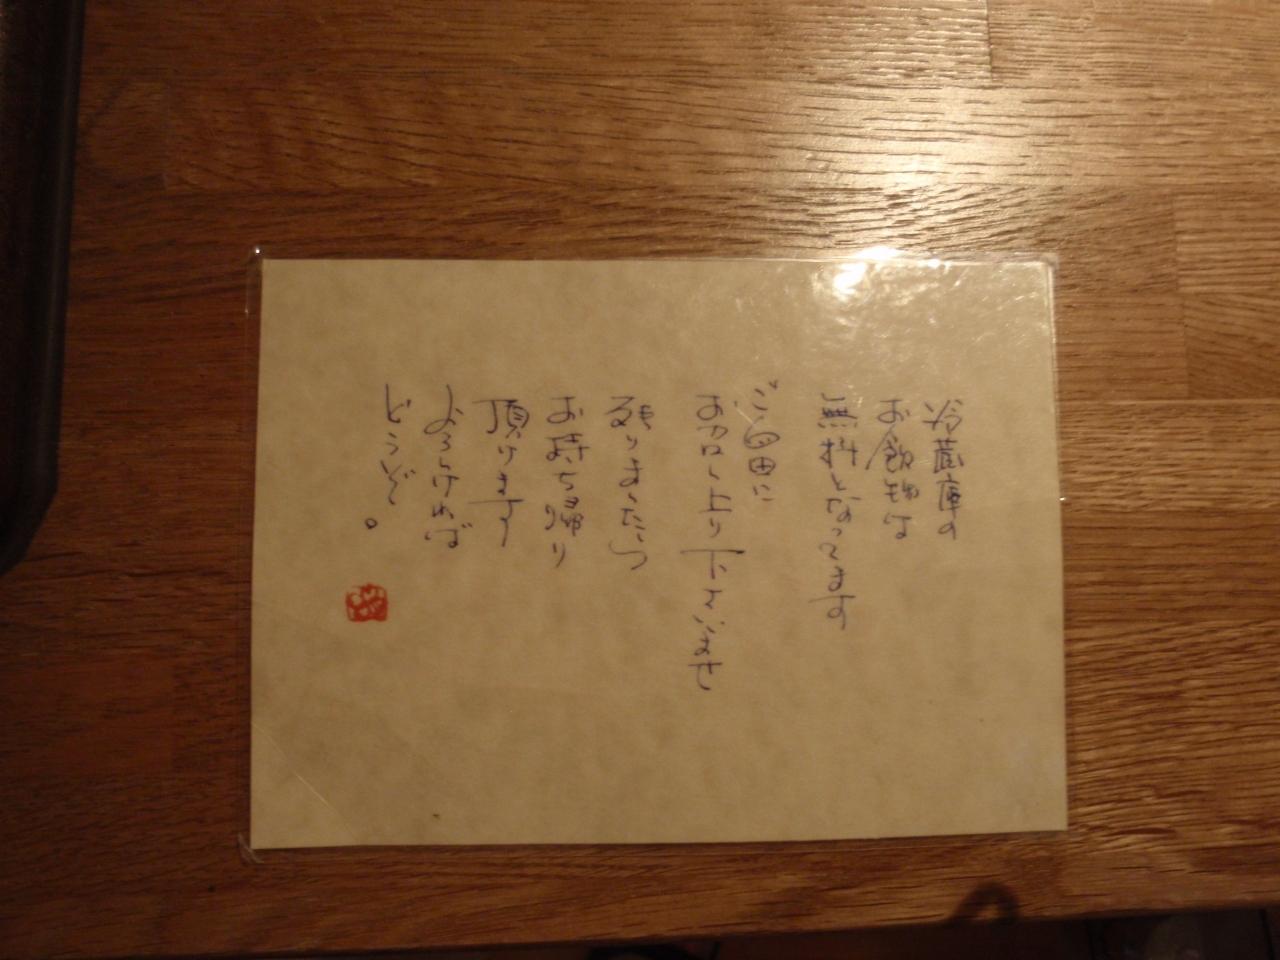 冷蔵庫の
お飲物は
無料となってます
ご自由に
お召し上り下さいませ
残りましたら
お持ち帰り
頂けます
よろしければ
どうぞ。